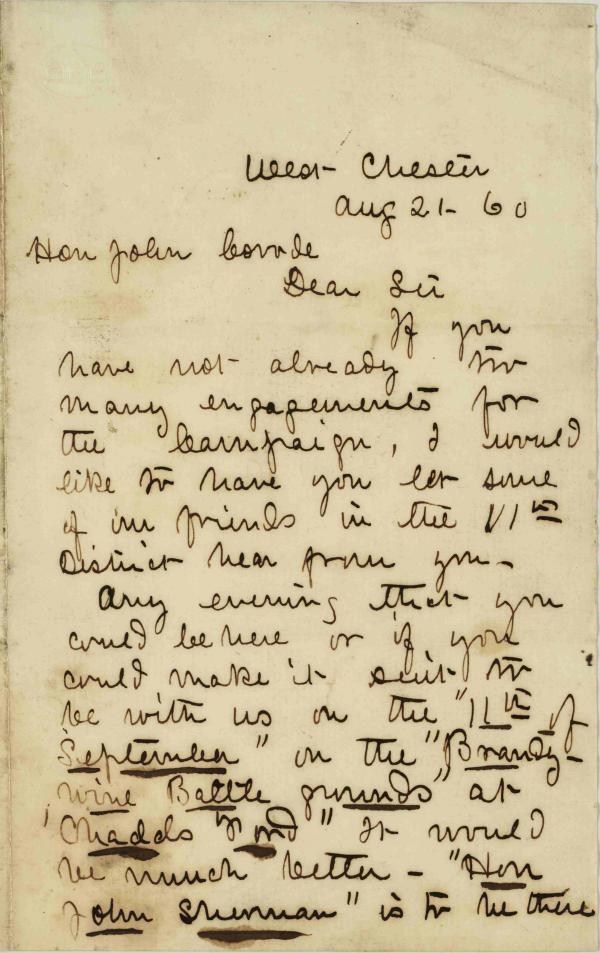 West Chester
Aug 21 - 60
Hon John Covode
Dear Sir
If you
have not already too
many engagements for
the Campaign, I would
like to have you let some
of our friends in the
District hear from you -
Any evening that you
could be here or if you
could make it suit to
be with us on the "11th of
September" on the "Brandy-
wine Battle grounds" at
"Chadds Ford" It would
be much better - "Hon
John Sherman" is to be there